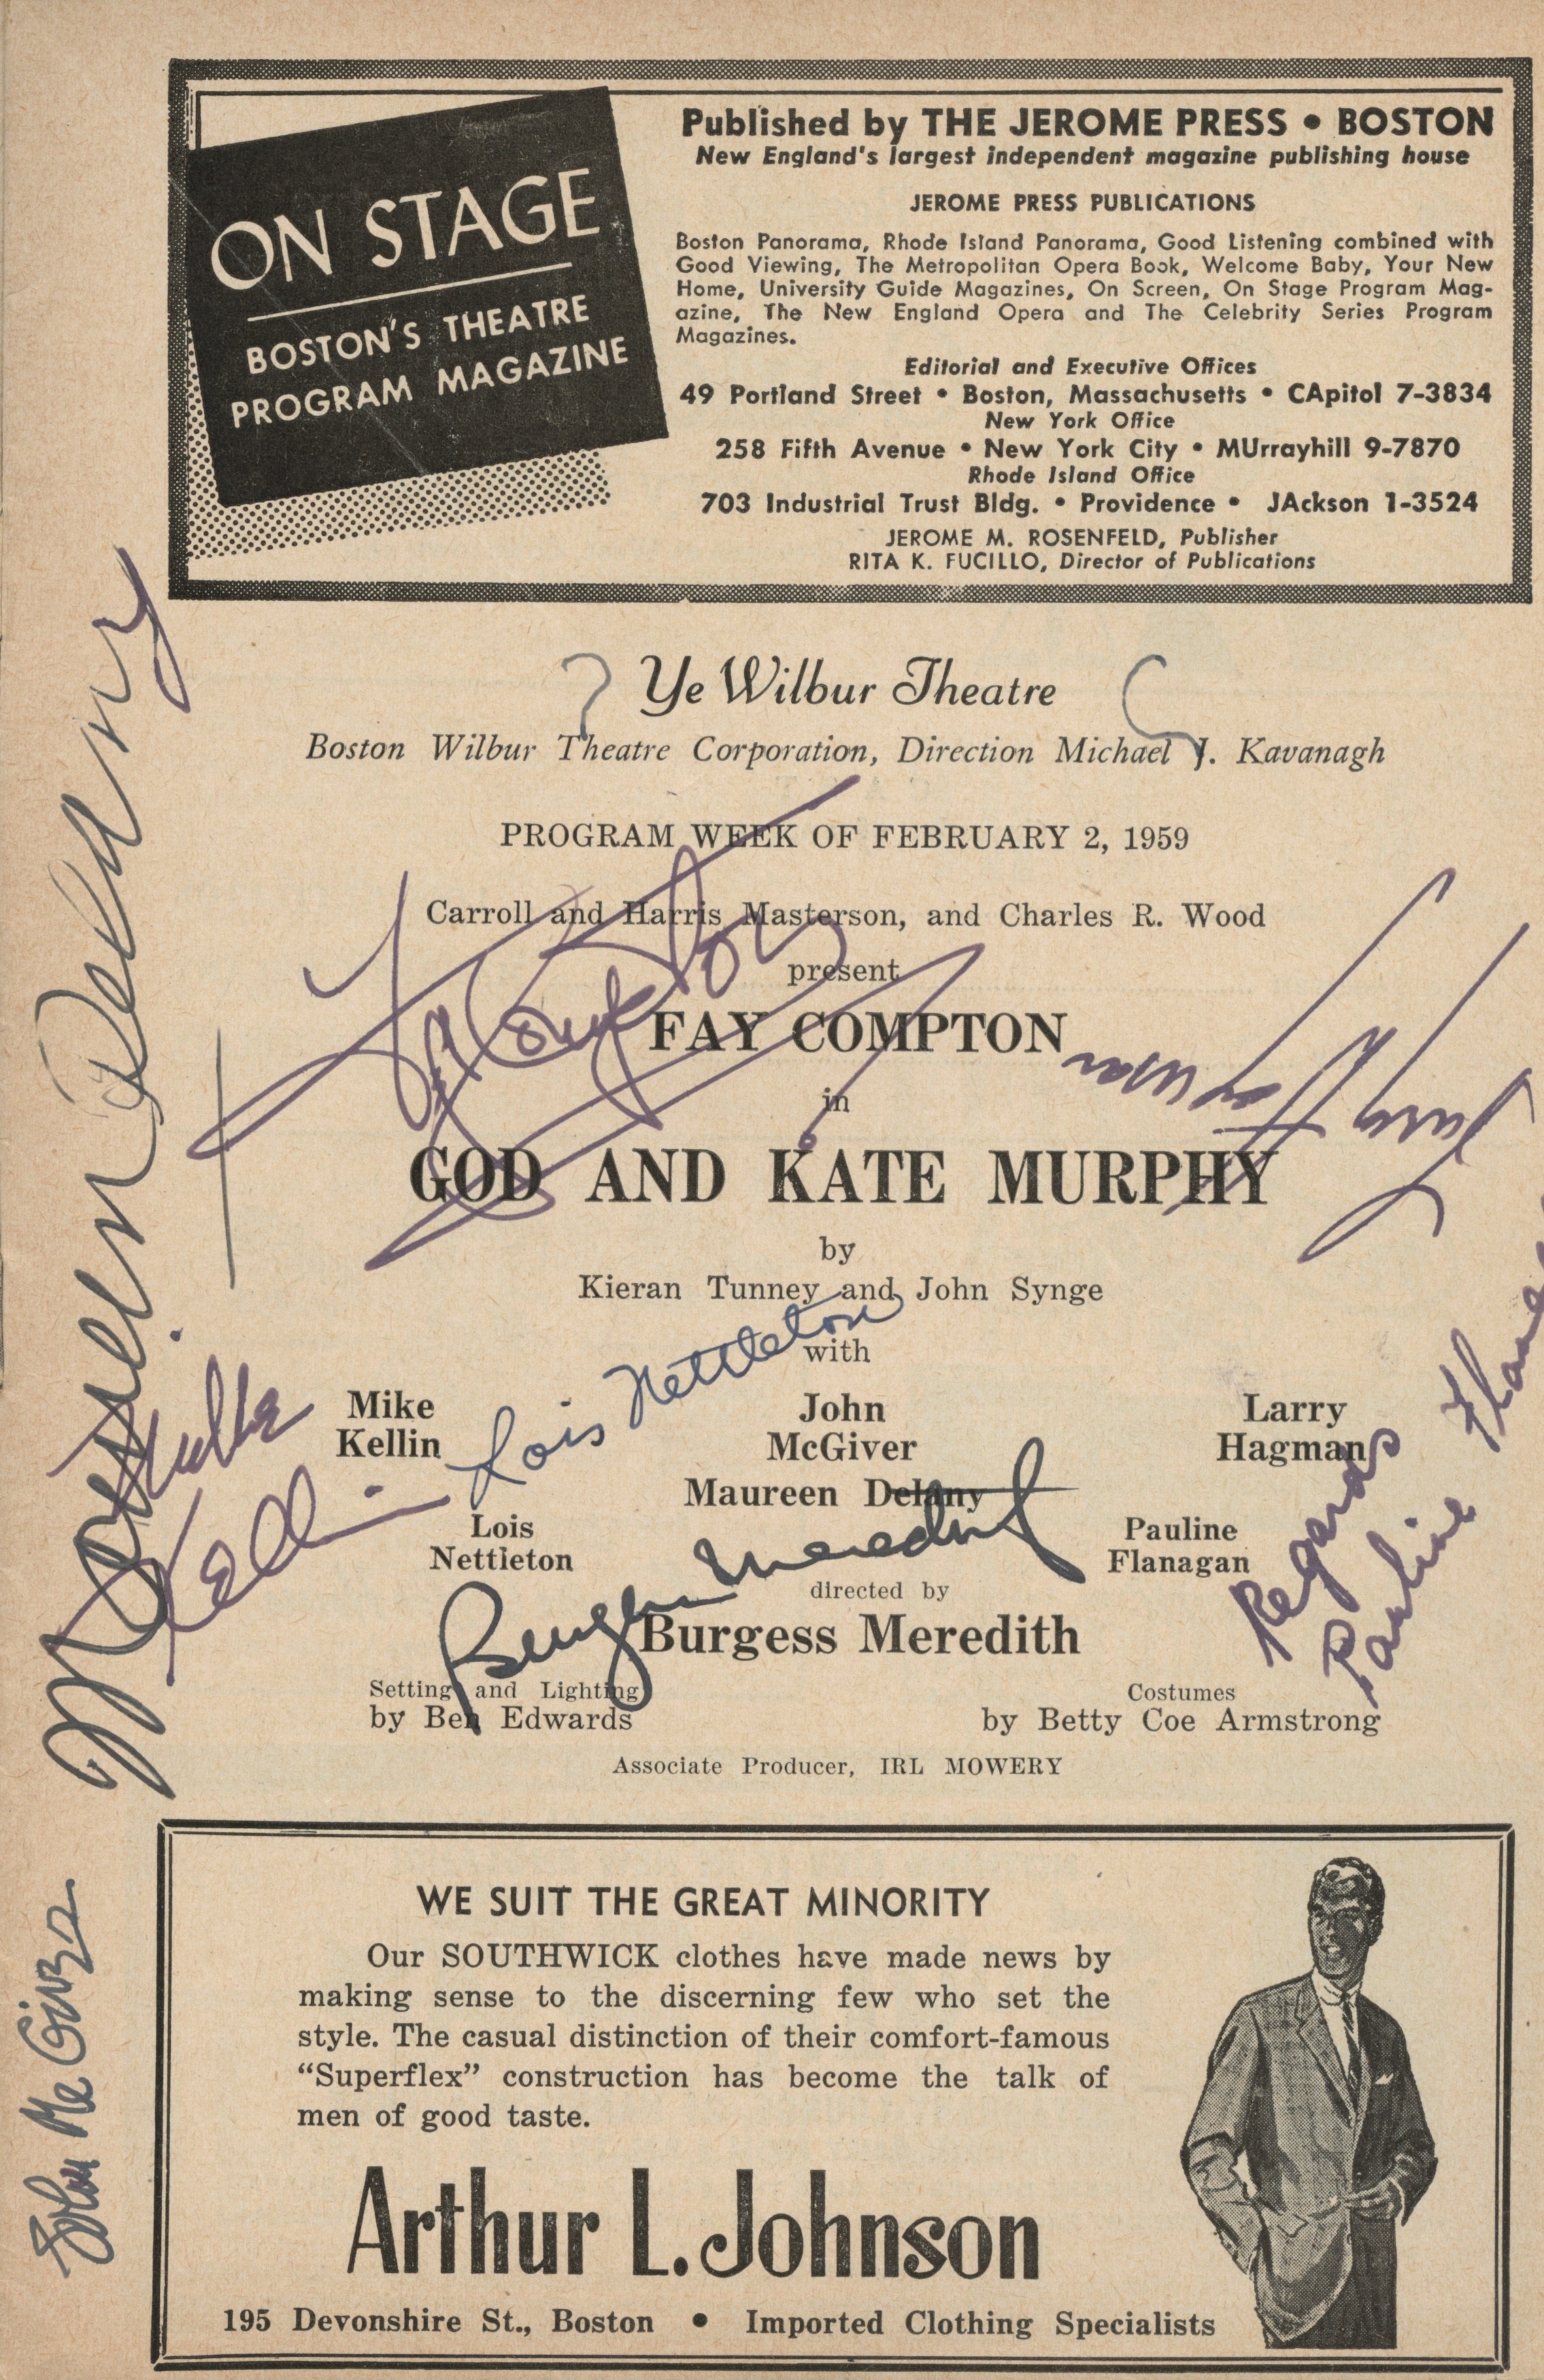 ON STAGE
BOSTON'S THEATRE
PROGRAM MAGAZINE
Published by THE JEROME PRESS • BOSTON
New England's largest independent magazine publishing house
JEROME PRESS PUBLICATIONS
Boston Panorama, Rhode Island Panorama, Good Listening combined with
Good Viewing, The Metropolitan Opera Book, Welcome Baby, Your New
Home, University Guide Magazines, On Screen, On Stage Program Mag-
azine, The New England Opera and The Celebrity Series Program
Magazines.
Editorial and Executive Offices
49 Portland Street • Boston, Massachusetts • CApitol 7-3834
New York Office
258 Fifth Avenue • New York City • MUrrayhill 9-7870
Rhode Island Office
703 Industrial Trust Bldg. • Providence • JAckson 1-3524
JEROME M. ROSENFELD, Publisher
RITA K. FUCILLO, Director of Publications
Ye Wilbur Theatre
Boston Wilbur Theatre Corporation, Direction Michael J. Kavanagh
PROGRAM WEEK OF FEBRUARY 2, 1959
Carroll and Harris Masterson, and Charles R. Wood
present
FAY COMPTON
Fay Compton
Larry Hagman
in
GOD AND KATE MURPHY
by
Kieran Tunney and John Synge
Lois Nettleton
with
Mike
Kellin
John
McGiver
Larry
Hagman
Maureen Delany
Lois
Nettleton
Pauline
Flanagan
Burgess Meredith
directed by
Burgess Meredith
Setting and Lighting
by Ben Edwards
Costumes
by Betty Coe Armstrong
Associate Producer, IRL MOWERY
Maureen Delany
Mike
Kellin
Regards
Pauline
John McGiver
WE SUIT THE GREAT MINORITY
Our SOUTHWICK clothes have made news by
making sense to the discerning few who set the
style. The casual distinction of their comfort-famous
“Superflex” construction has become the talk of
men of good taste.
Arthur L. Johnson
195 Devonshire St., Boston • Imported Clothing Specialists